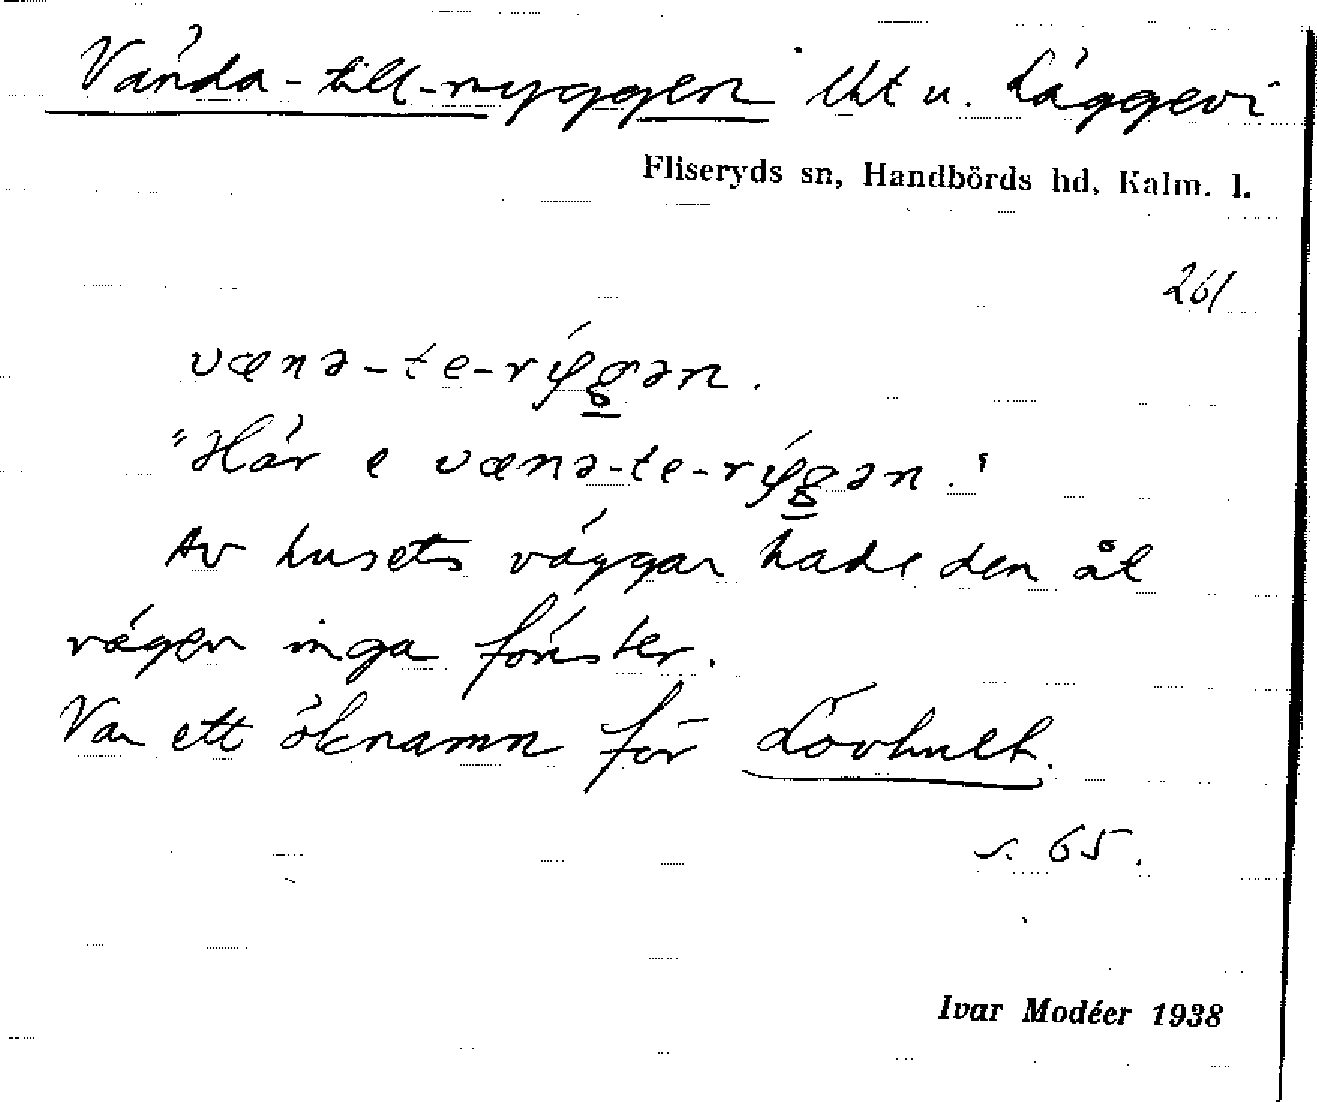 Vända-till-ryggen lht u. Läggevi
Fliseryds sn, Handbörds hd, Kalm. l.
261
vænə-te-rýgən.
"Här e vænə-te-rýgən."
Av husets väggar hade den åt
vägen inga fönster.
Var ett öknamn för Lövhult.
s. 65.
Ivar Modéer 1938